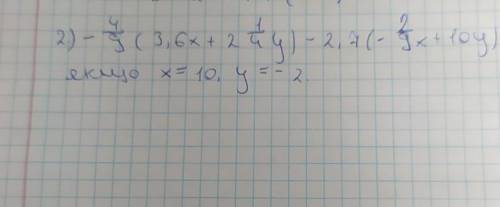 2) - 4/9 ( 3,6x + 2 1/4 y ) - 2,7 (- 2/9 x + 10y)
якщо x = 10, y = - 2.